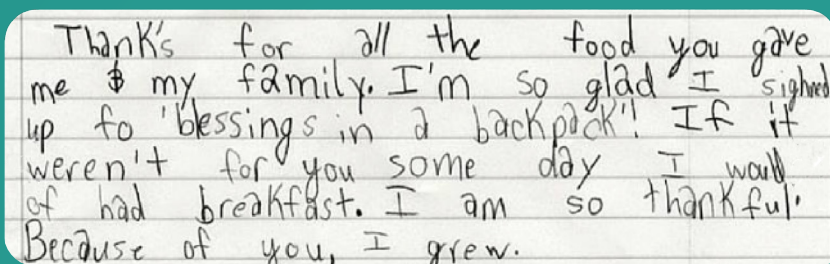 Thank's for all the food you gave
me & my family. I'm so glad I sighned
up fo 'blessings in a backpack'! If it
weren't for you some day I would
of had breakfast. I am so thankful.
Because of you, I grew.